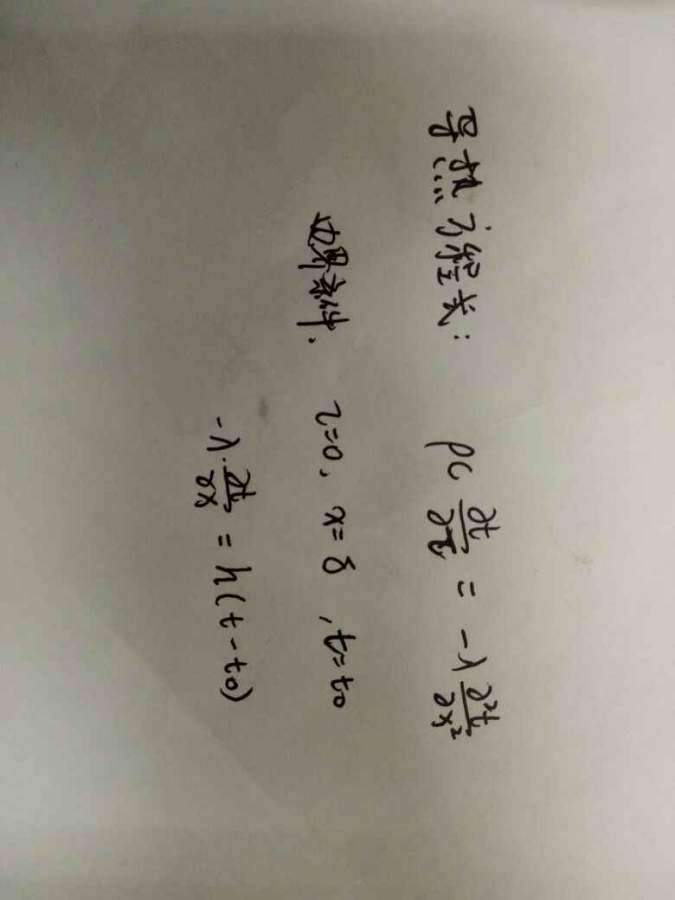 导热方程式: ρc ∂t/∂τ = -λ ∂²t/∂x²
边界条件. τ=0, x=δ, t=t0
-λ·∂t/∂x = h(t-t0)